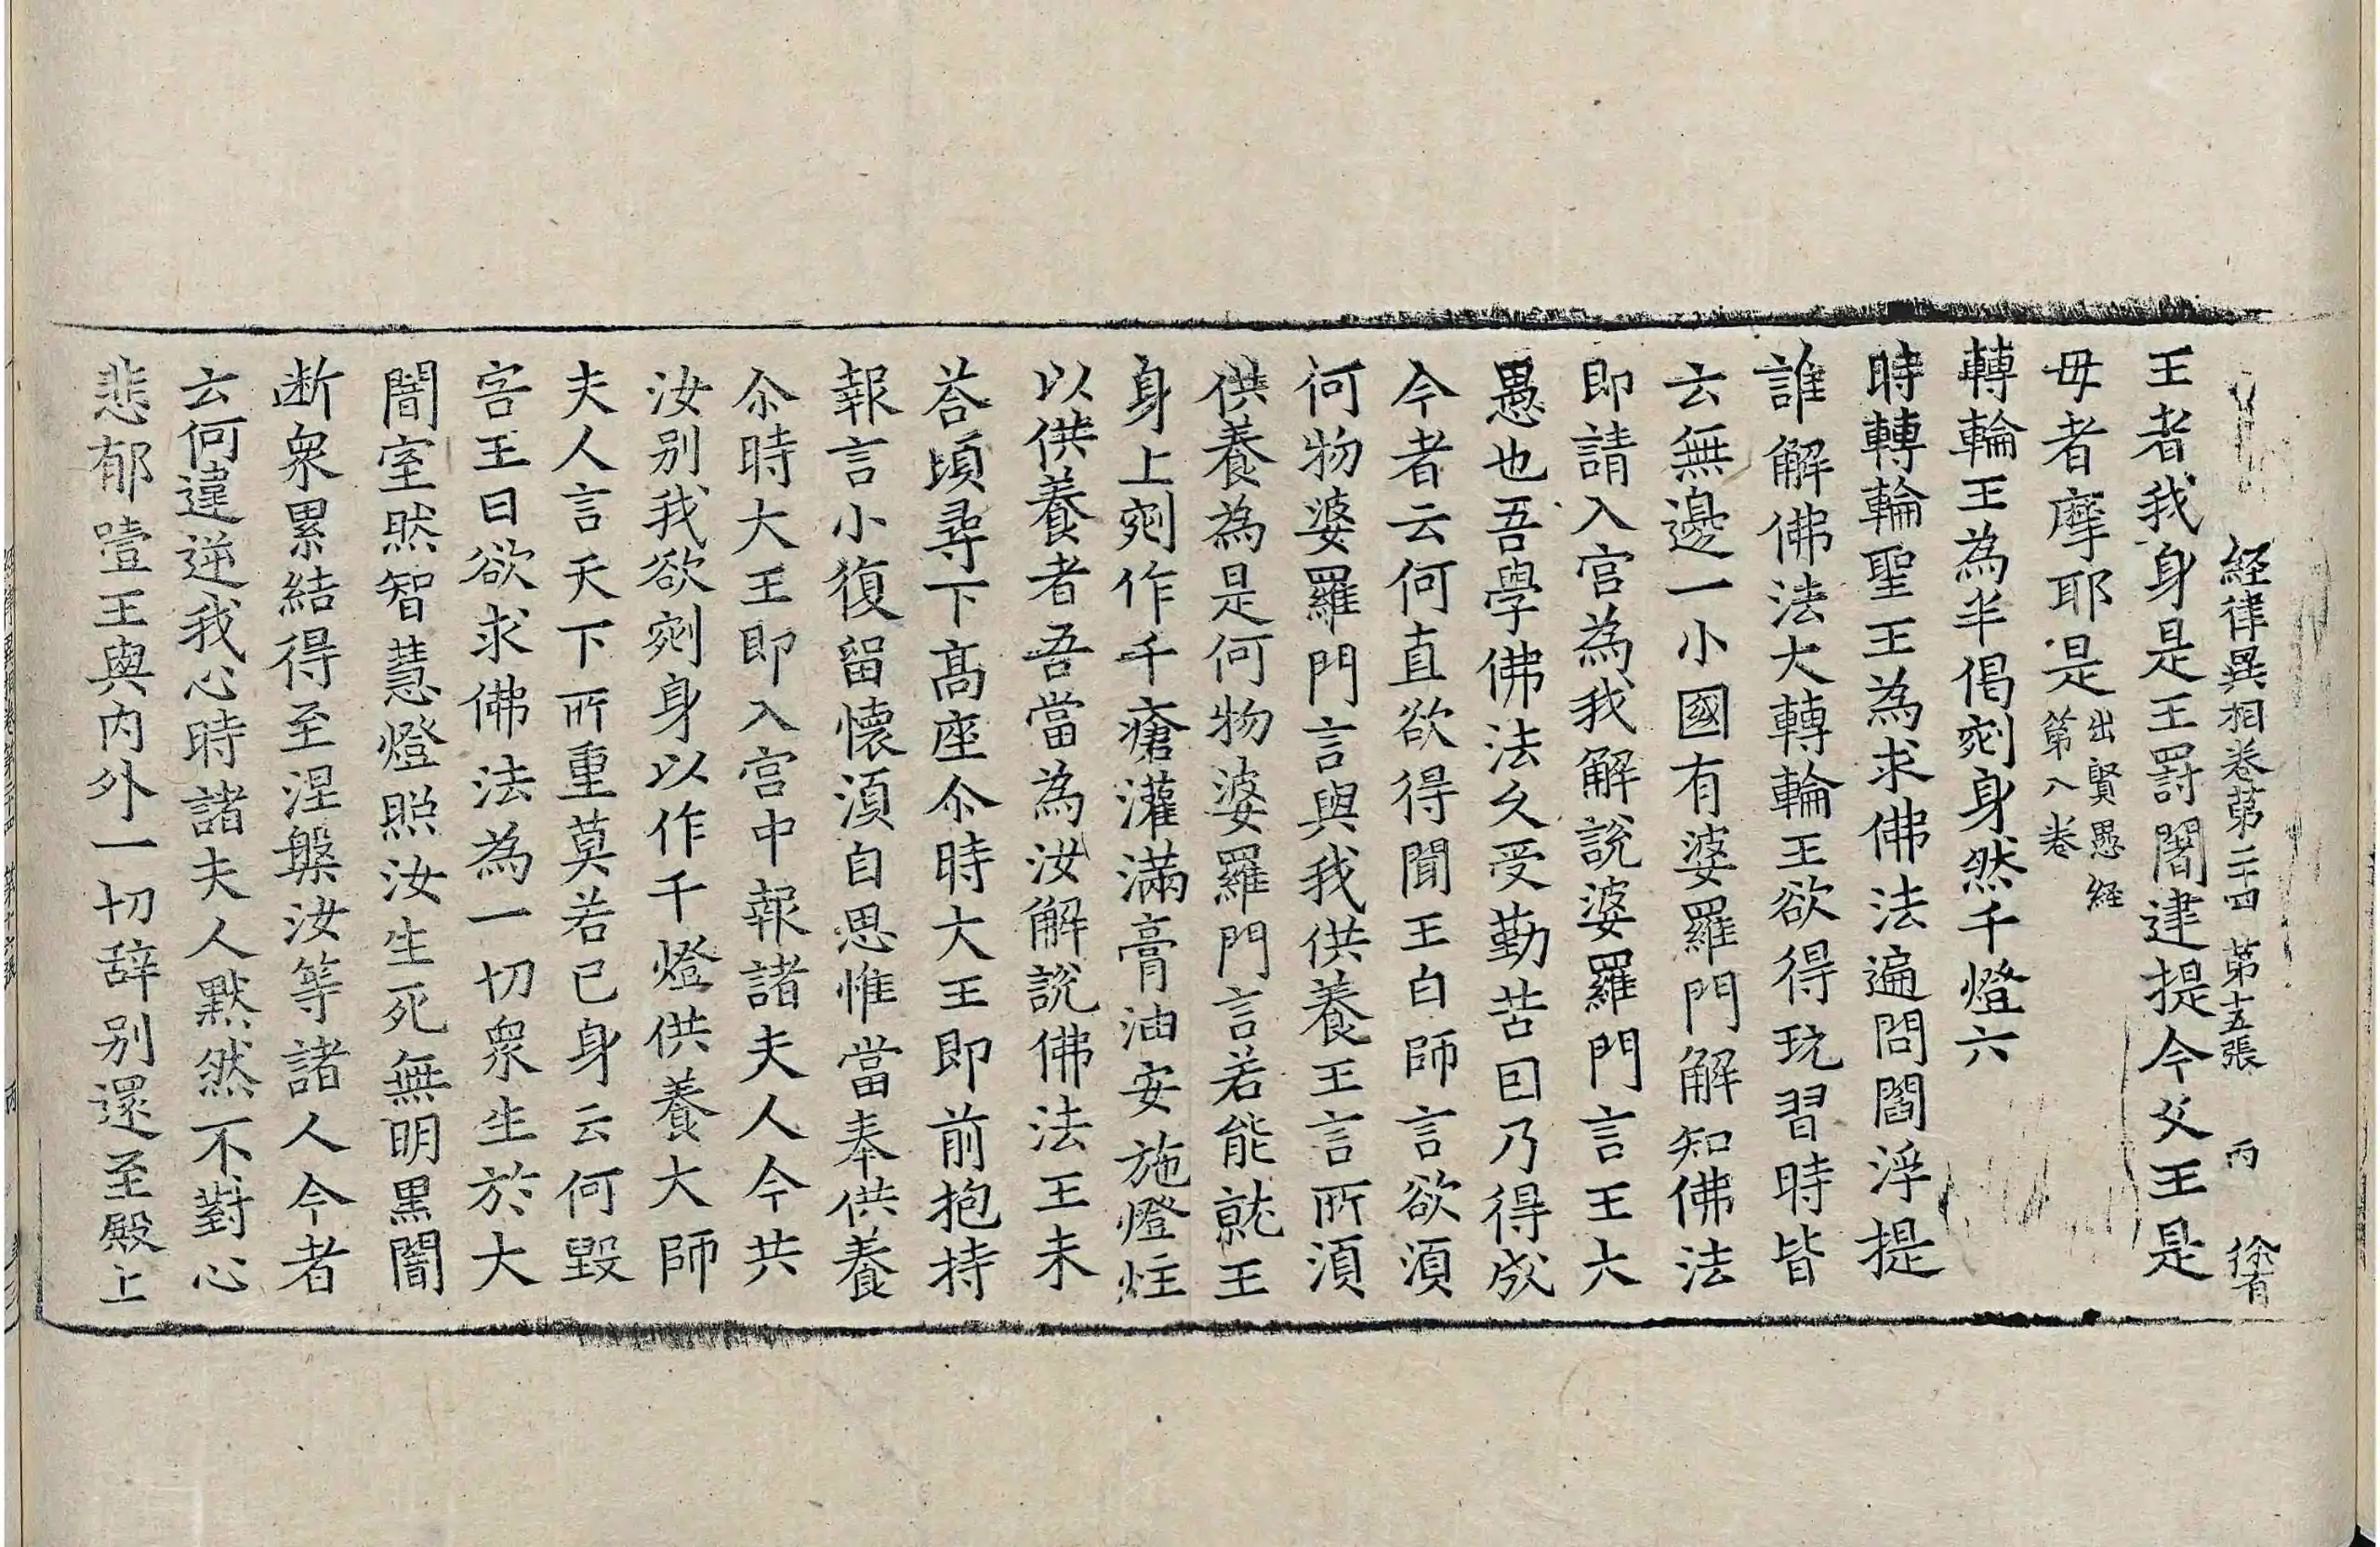 経律異相卷第二十四 第十五張 丙 徐有
王者我身是王罽闍建提今父王是
母者摩耶是出賢愚経第八卷
轉輪王為半偈剜身然千燈六
時轉輪聖王為求佛法遍問閻浮提
誰解佛法大轉輪王欲得玩習時皆
云無邊一小國有婆羅門解知佛法
即請入宫為我解說婆羅門言王大
愚也吾學佛法久受勤苦囙乃得成
今者云何直欲得聞王白師言欲湏
何物婆羅門言與我供養王言所湏
供養為是何物婆羅門言若能就王
身上剜作千瘡灌滿膏油安施燈炷
以供養者吾當為汝解說佛法王未
荅頃尋下髙座尒時大王即前抱持
報言小復留懷湏自思惟當奉供養
尒時大王即入宫中報諸夫人今共
汝别我欲剜身以作千燈供養大師
夫人言天下所重莫若已身云何毀
害王曰欲求佛法為一切衆生於大
闇室然智慧燈照汝生死無明黒闇
断衆累結得至涅槃汝等諸人今者
云何違逆我心時諸夫人默然不對心
悲郁噎王與内外一切辞别還至殿上